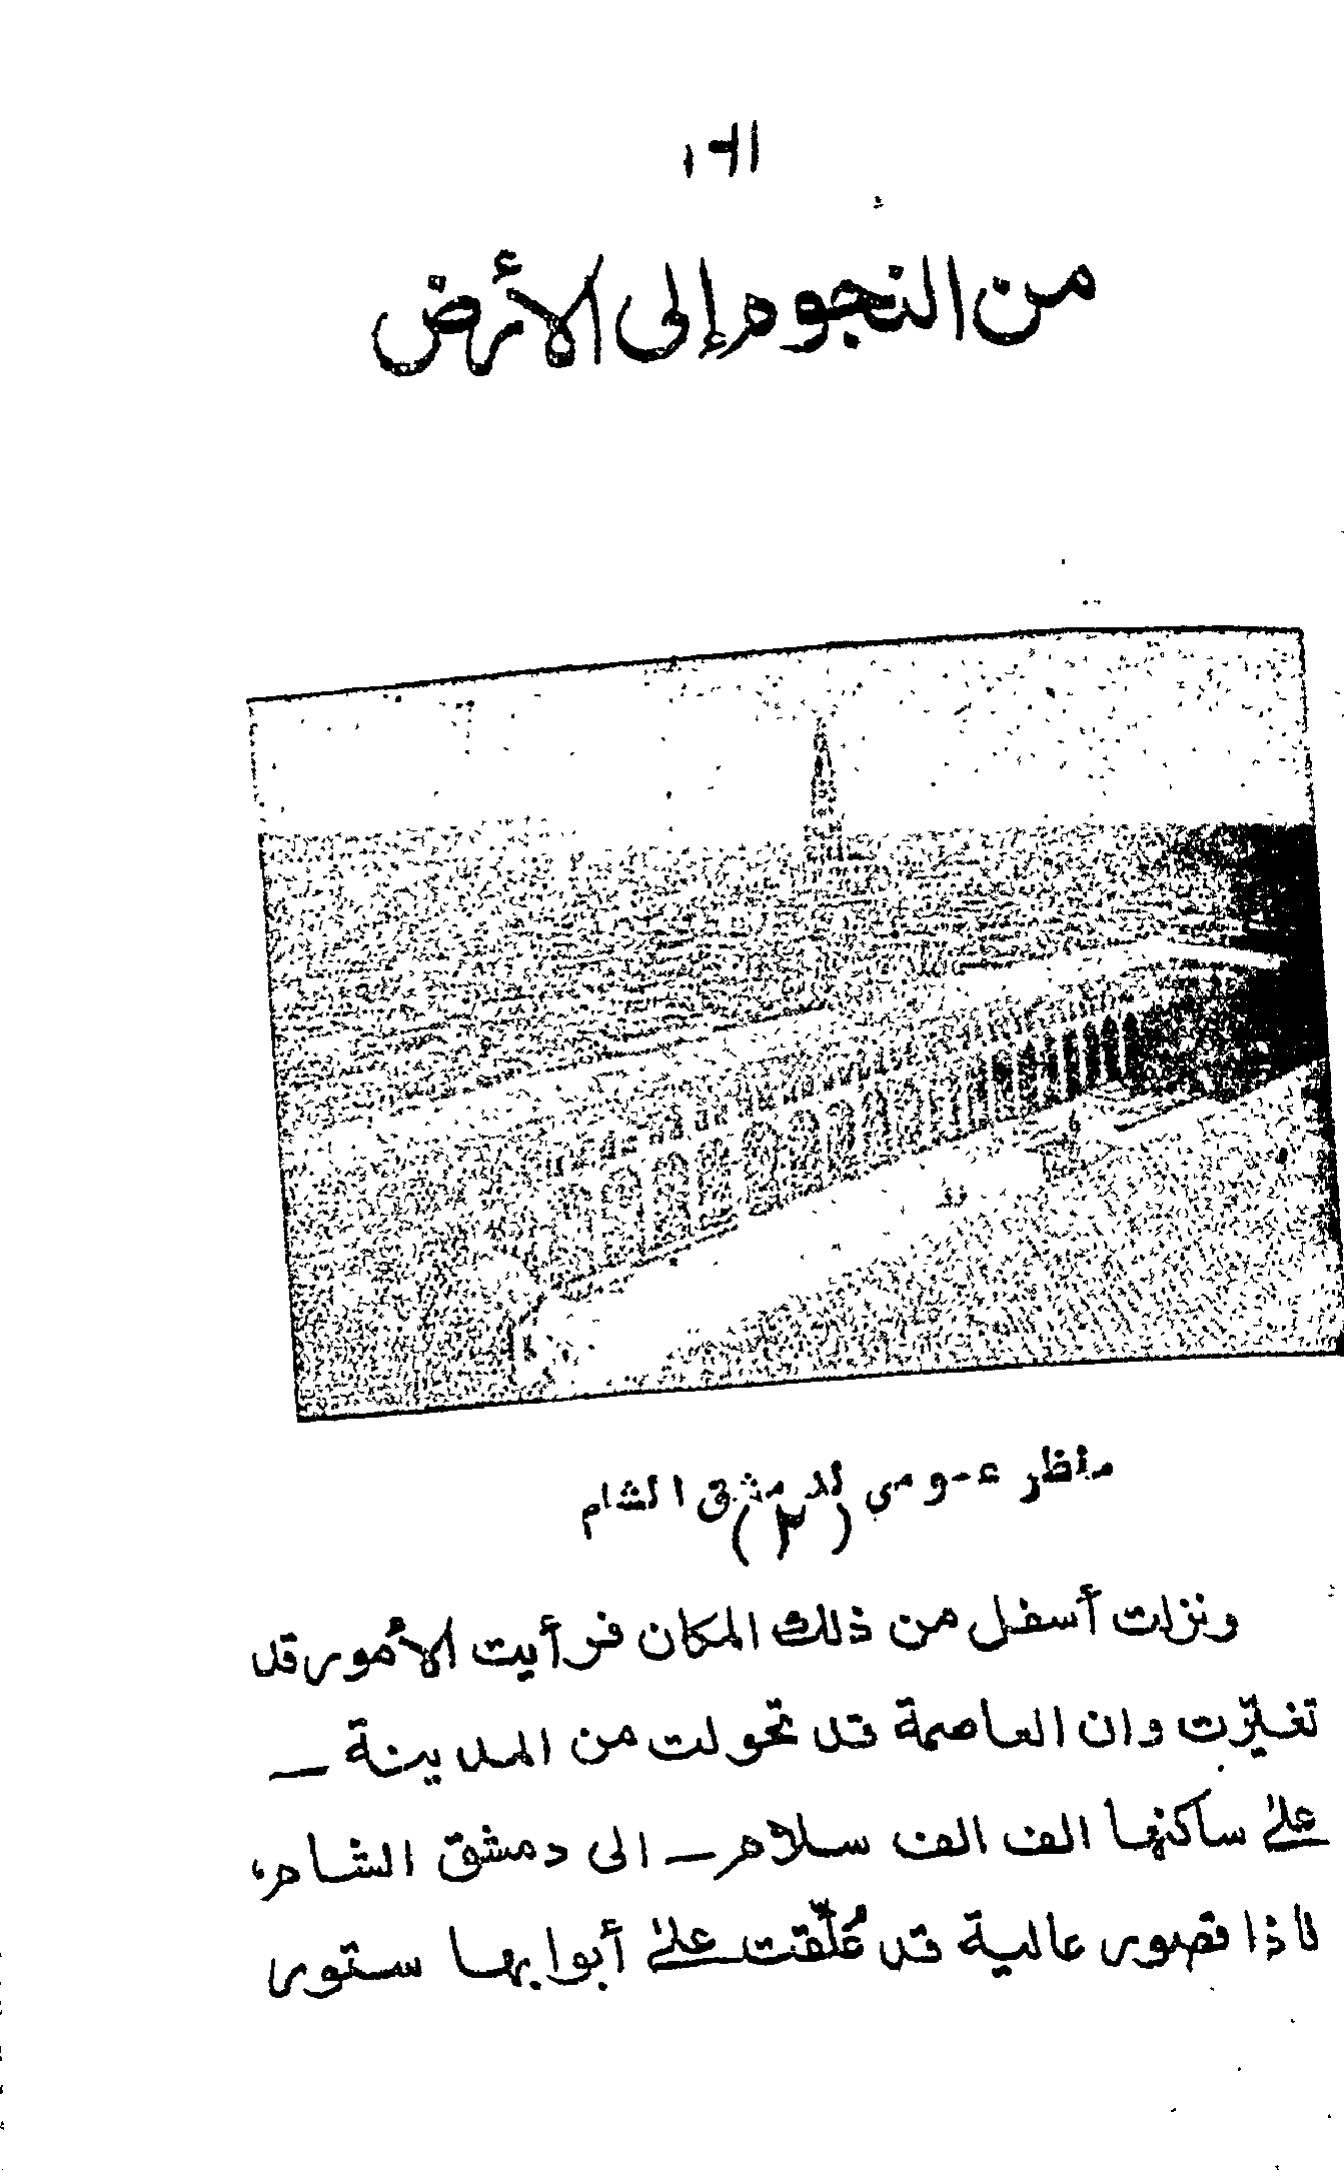 من النجوم إلى الأرض
منظر عمومي لدمشق الشام
(٢)
ونزلت أسفل من ذلك المكان فرأيت الأمور قد
تغيّرت وان العاصمة قد تحولت من المدينة —
على ساكنها الف الف سلام — الى دمشق الشام،
فاذا قصور عالية قد عُلّقت على أبوابها ستور